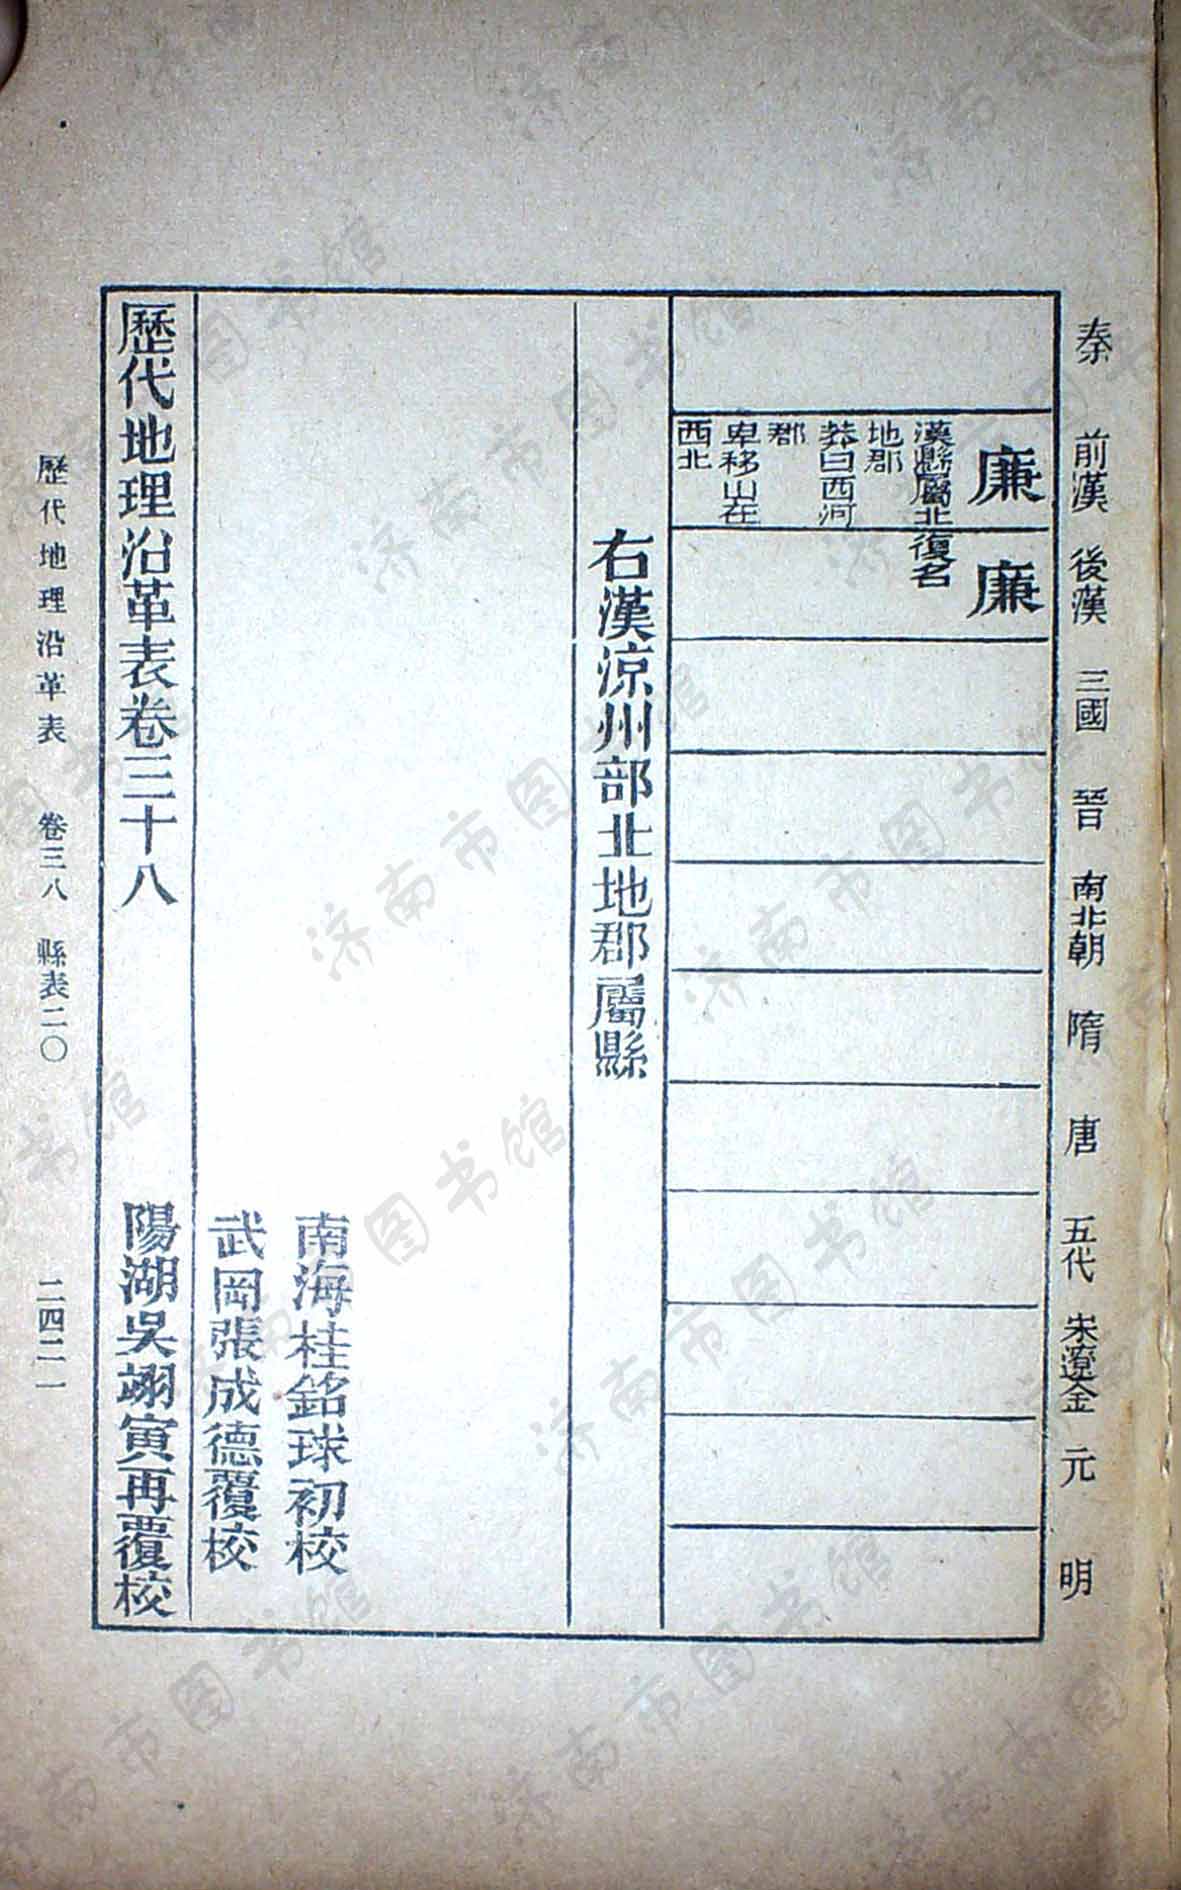 秦 前漢 後漢 三國 晉 南北朝 隋 唐 五代 宋遼金 元 明
廉
漢縣屬北
地郡
莽曰西河
郡
卑移山在
西北
廉
復名
右漢涼州部北地郡屬縣
南海桂銘球初校
武岡張成德覆校
歷代地理沿革表卷三十八
陽湖吳翊寅再覆校
歷代地理沿革表 卷三八 縣表二〇 二四二一
济南市图书馆